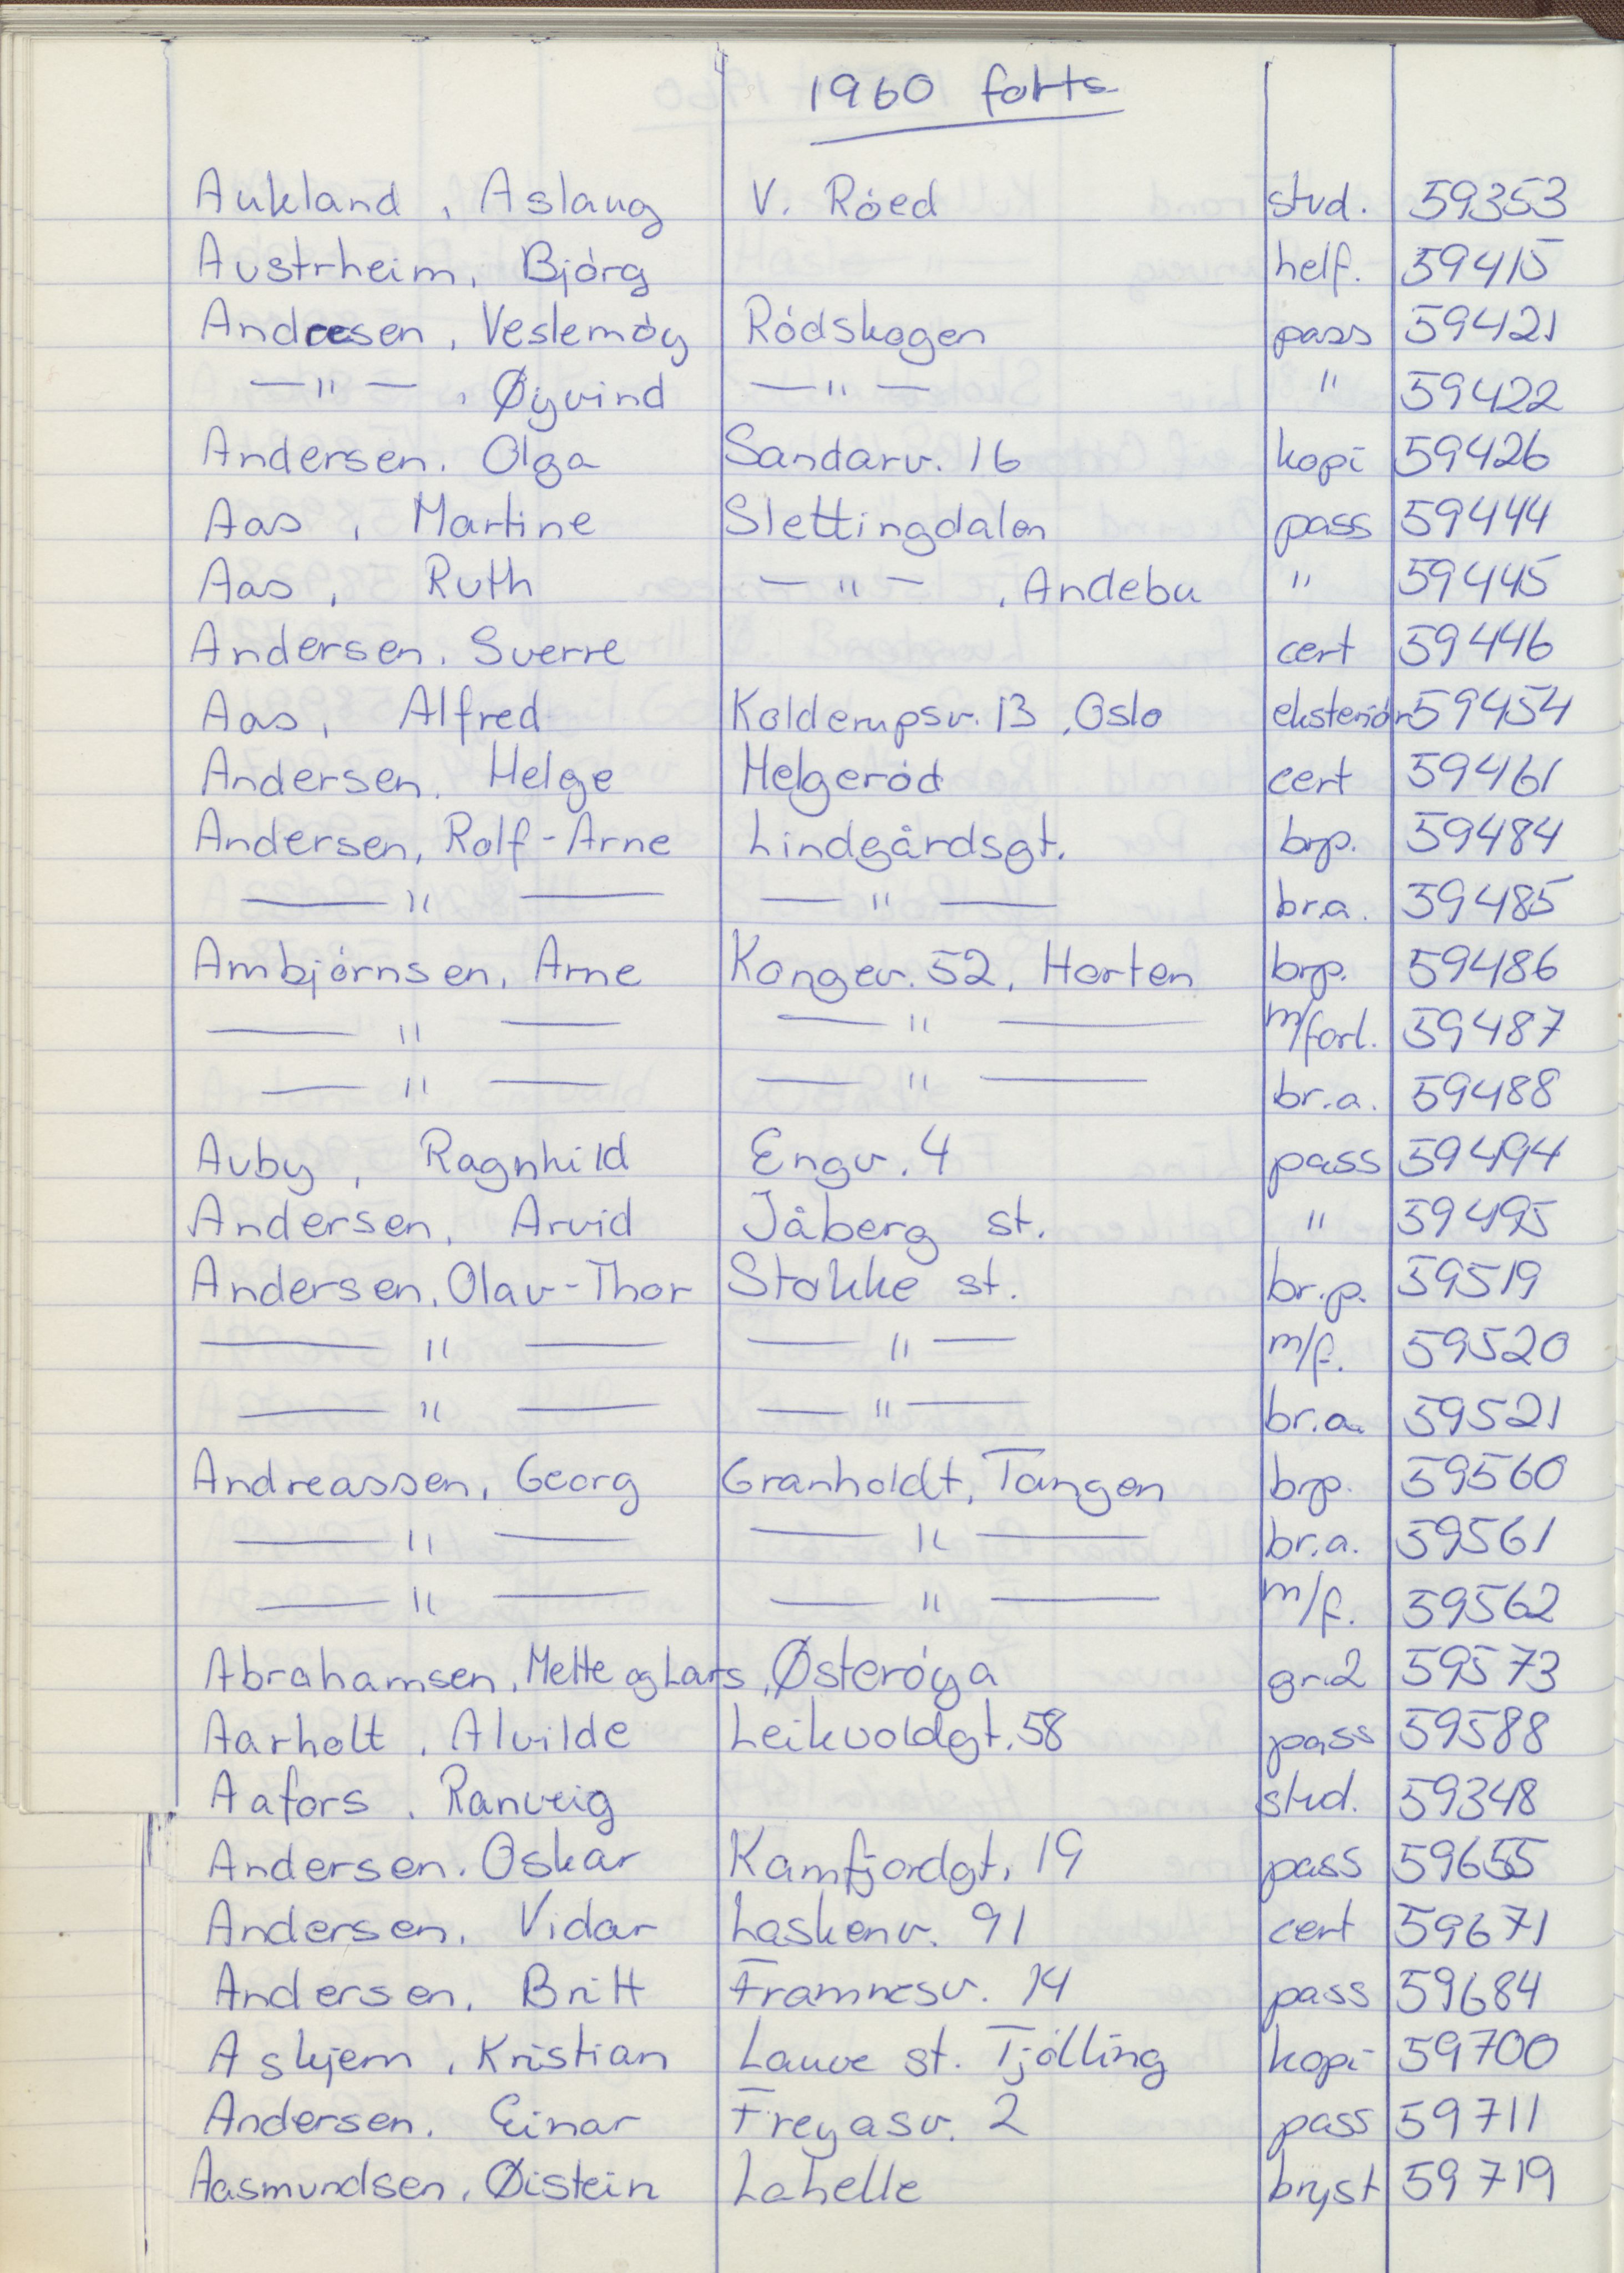 1960 forts
Aukland, Aslaug V. Róed stud. 59353
Austrheim, Bjórg helf. 59415
Andresen, Veslemóy Ródskogen pass 59421
— " — , Øyvind — " — " 59422
Andersen, Olga Sandarv. 16 kopi 59426
Aas, Martine Slettingdalen pass 59444
Aas, Ruth — " — , Andebu " 59445
Andersen, Sverre cert 59446
Aas, Alfred Kolderupsv. 13, Oslo eksteriór 59454
Andersen, Helge Helgeród cert 59461
Andersen, Rolf-Arne Lindgårdsgt. brp. 59484
— " — — " — br.a. 59485
Ambjórnsen, Arne Kongev. 52, Horten brp. 59486
— " — — " — m/forl. 59487
— " — — " — br.a. 59488
Auby, Ragnhild Engv. 4 pass 59494
Andersen, Arvid Jåberg st. " 59495
Andersen, Olav-Thor Stokke st. br.p. 59519
— " — — " — m/f. 59520
— " — — " — br.a. 59521
Andreassen, Georg Granholdt, Tangen brp. 59560
— " — — " — br.a. 59561
— " — — " — m/f. 59562
Abrahamsen, Mette og Lars, Østeróya gr.2 59573
Aarholt, Alvilde Leikvoldgt. 58 pass 59588
Aafors, Ranveig stud. 59348
Andersen, Oskar Kamfjordgt. 19 pass 59655
Andersen, Vidar Laskenv. 91 cert 59671
Andersen, Britt Framnesv. 14 pass 59684
Askjem, Kristian Lauve st. Tjólling kopi 59700
Andersen, Einar Freyasv. 2 pass 59711
Aasmundsen, Øistein Lahelle bryst 59719